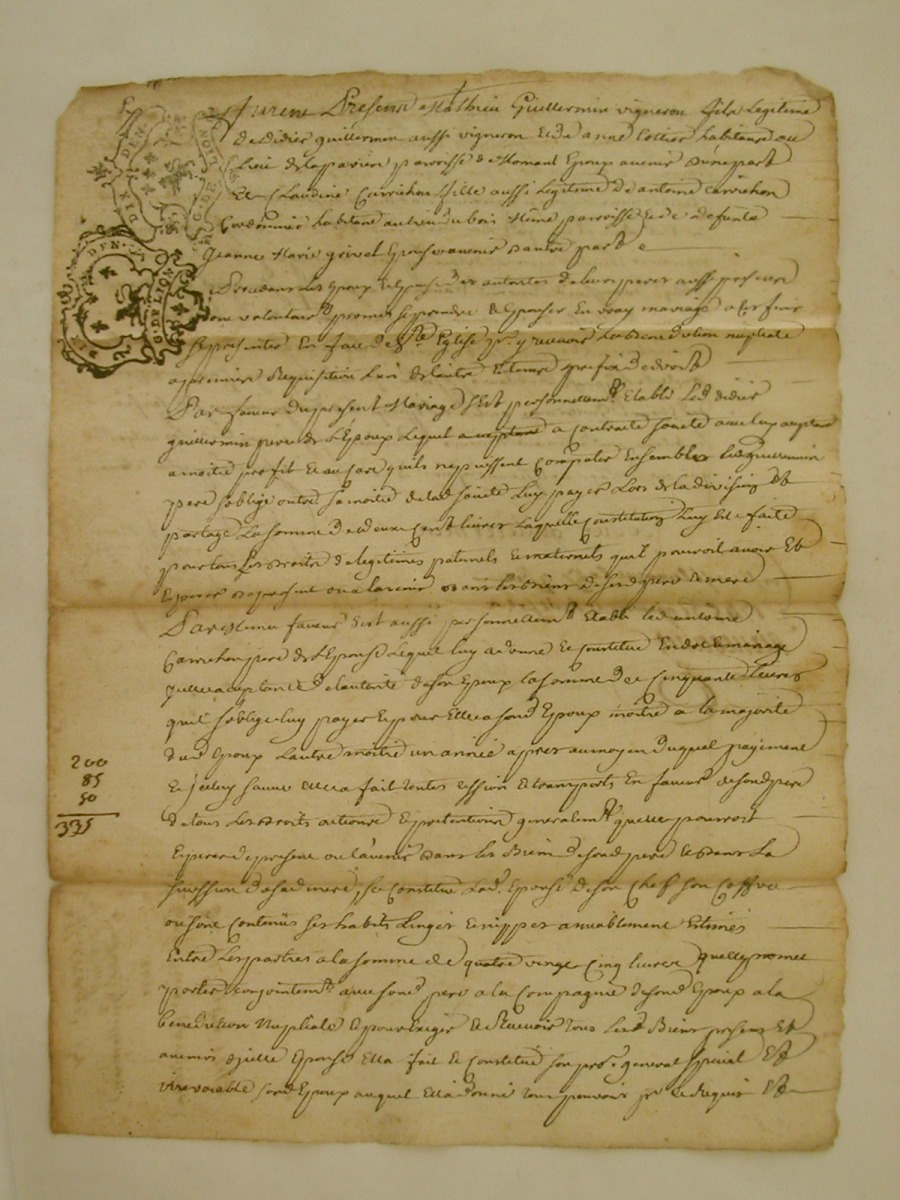 furent Presens Mathieu Guillermin vigneron fils Legitime
de Didier guillermin aussi vigneron et de anne Collier habitans au
Lieu de parroisse de Epoux avenir d'une part
et Claudine Carrichon fille aussi Legitime de antoine Carrichon
Cordonnier habitant au lieu du bois parroisse et de defunte
Jeanne Marie grivel Epouse avenir d'autre part
Lesquels Epoux et Epouse de autorités de leurs peres aussi presens
ont volontairement promis se prendre et Epouser En vray mariage a cet fin
se presenter En face de Ste Eglise pr y recevoir La Benediction nuptiale
a premiere Requisition L'un de l'autre
En faveur du present Mariage s'est personnellemt Etably led Didier
guillermin pere de L'Epoux Lequel a contracté societé avec luy
a moitié profit et au cas qu'ils ne pussent Compatir Ensembles led guillermin
pere s'oblige outre sa moitié de lad societé Luy payer Lors de la division et
partage La somme de deux Cent livres Laquelle Constitution Luy Est faite
pour tous Les Droits de legitimes paternels et maternels qu'il pourroit avoir et
Esperer a present ou a l'avenir dans les biens de sesd pere et mere
Par Meme faveur s'est aussi personnellemt Etabli led antoine
Carrichon pere de L'Epouse Lequel luy a donné et Constitué En dot et mariage
Icelle acceptante de l'autorité de son Epoux la somme de Cinquante Livres
qu'il s'oblige luy payer et pour Elle a sond Epoux moitié a la majorité
dud Epoux L'autre moitié un année apres au moyen duquel payement
et Iceluy sauve Elle a fait toutes Cession et transports En faveur de sond pere
de tous Les Droits actions et pretentions generalemt qu'elle pourroit
Esperer de present ou l'avenir dans Les Biens de sond pere et dans La
succession de sad mere, se Constitue Lad. Epouse de son Chef son Coffre
Contenus ses habits Linges et nippes amublement Estimés
Entre Les parties a la somme de quatre vingt Cinq livres quelle promet
porter Conjointemt avec sond pere a la Compagnie de sond Epoux a la
benediction Nuptiale et pour Exiger et Recevoir tous sesd Biens presens et
avenirs Icelle Epouse Ella fait et Constitué son procr general special et
irrevocable sond Epoux auquel Ella donné tous pouvoirs pr ce Requis et
200
85
50
335